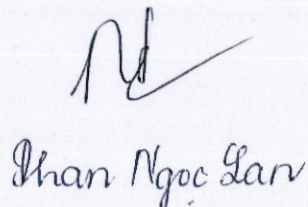 Phan Ngọc Lan